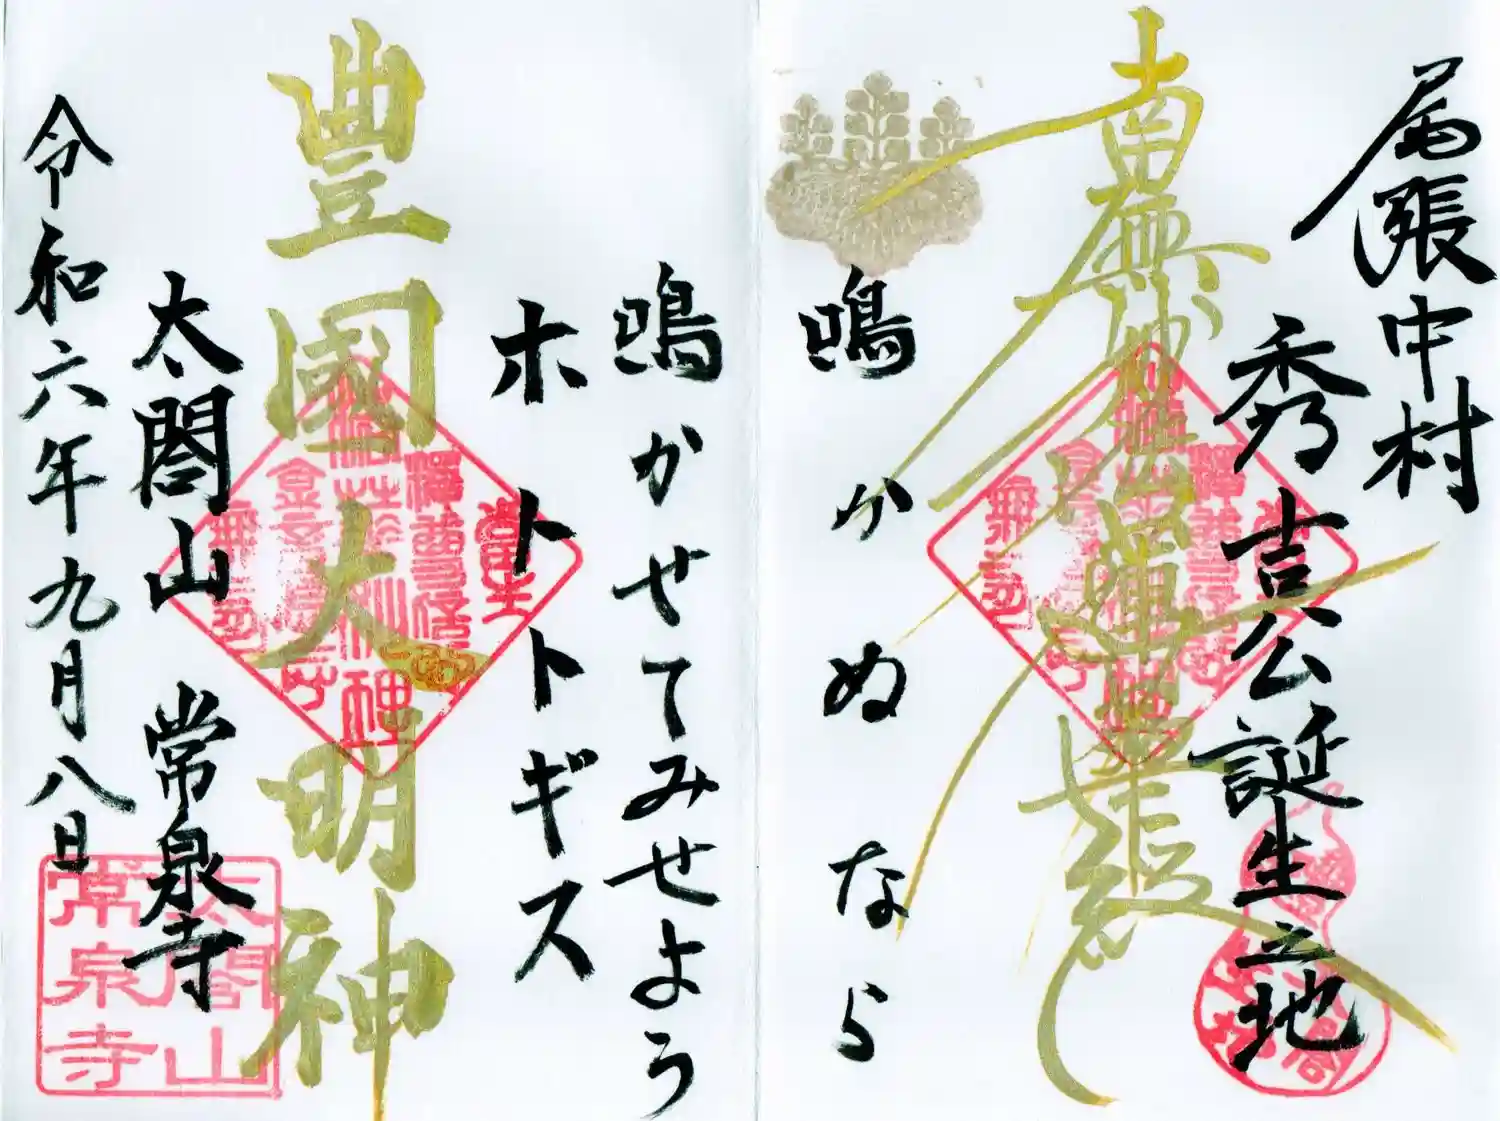 尾張中村
秀吉公誕生之地
南無妙法蓮華経
鳴かぬなら
鳴かせてみせよう
ホトトギス
豊國大明神
太閤山 常泉寺
令和六年九月八日
太閤山
常泉寺